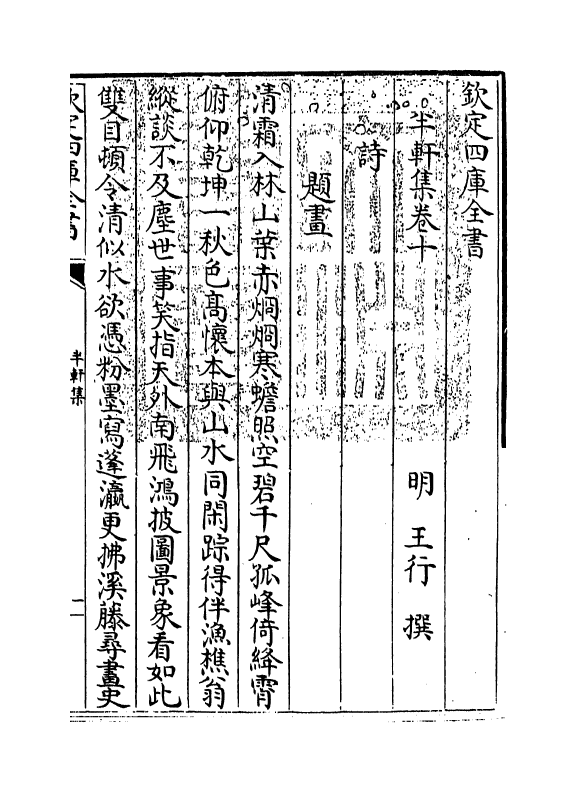 欽定四庫全書
半軒集卷十
明 王行 撰
詩
題畫
清霜入林山葉赤烱烱寒蟾照空碧千尺孤峰倚絳霄
俯仰乾坤一秋色髙懷本與山水同閑踪得伴漁樵翁
縱談不及塵世事笑指天外南飛鴻披圖景象看如此
雙目頓令清似水欲憑粉墨寫蓬瀛更拂溪藤尋畫史
欽定四庫全書
半軒集
一